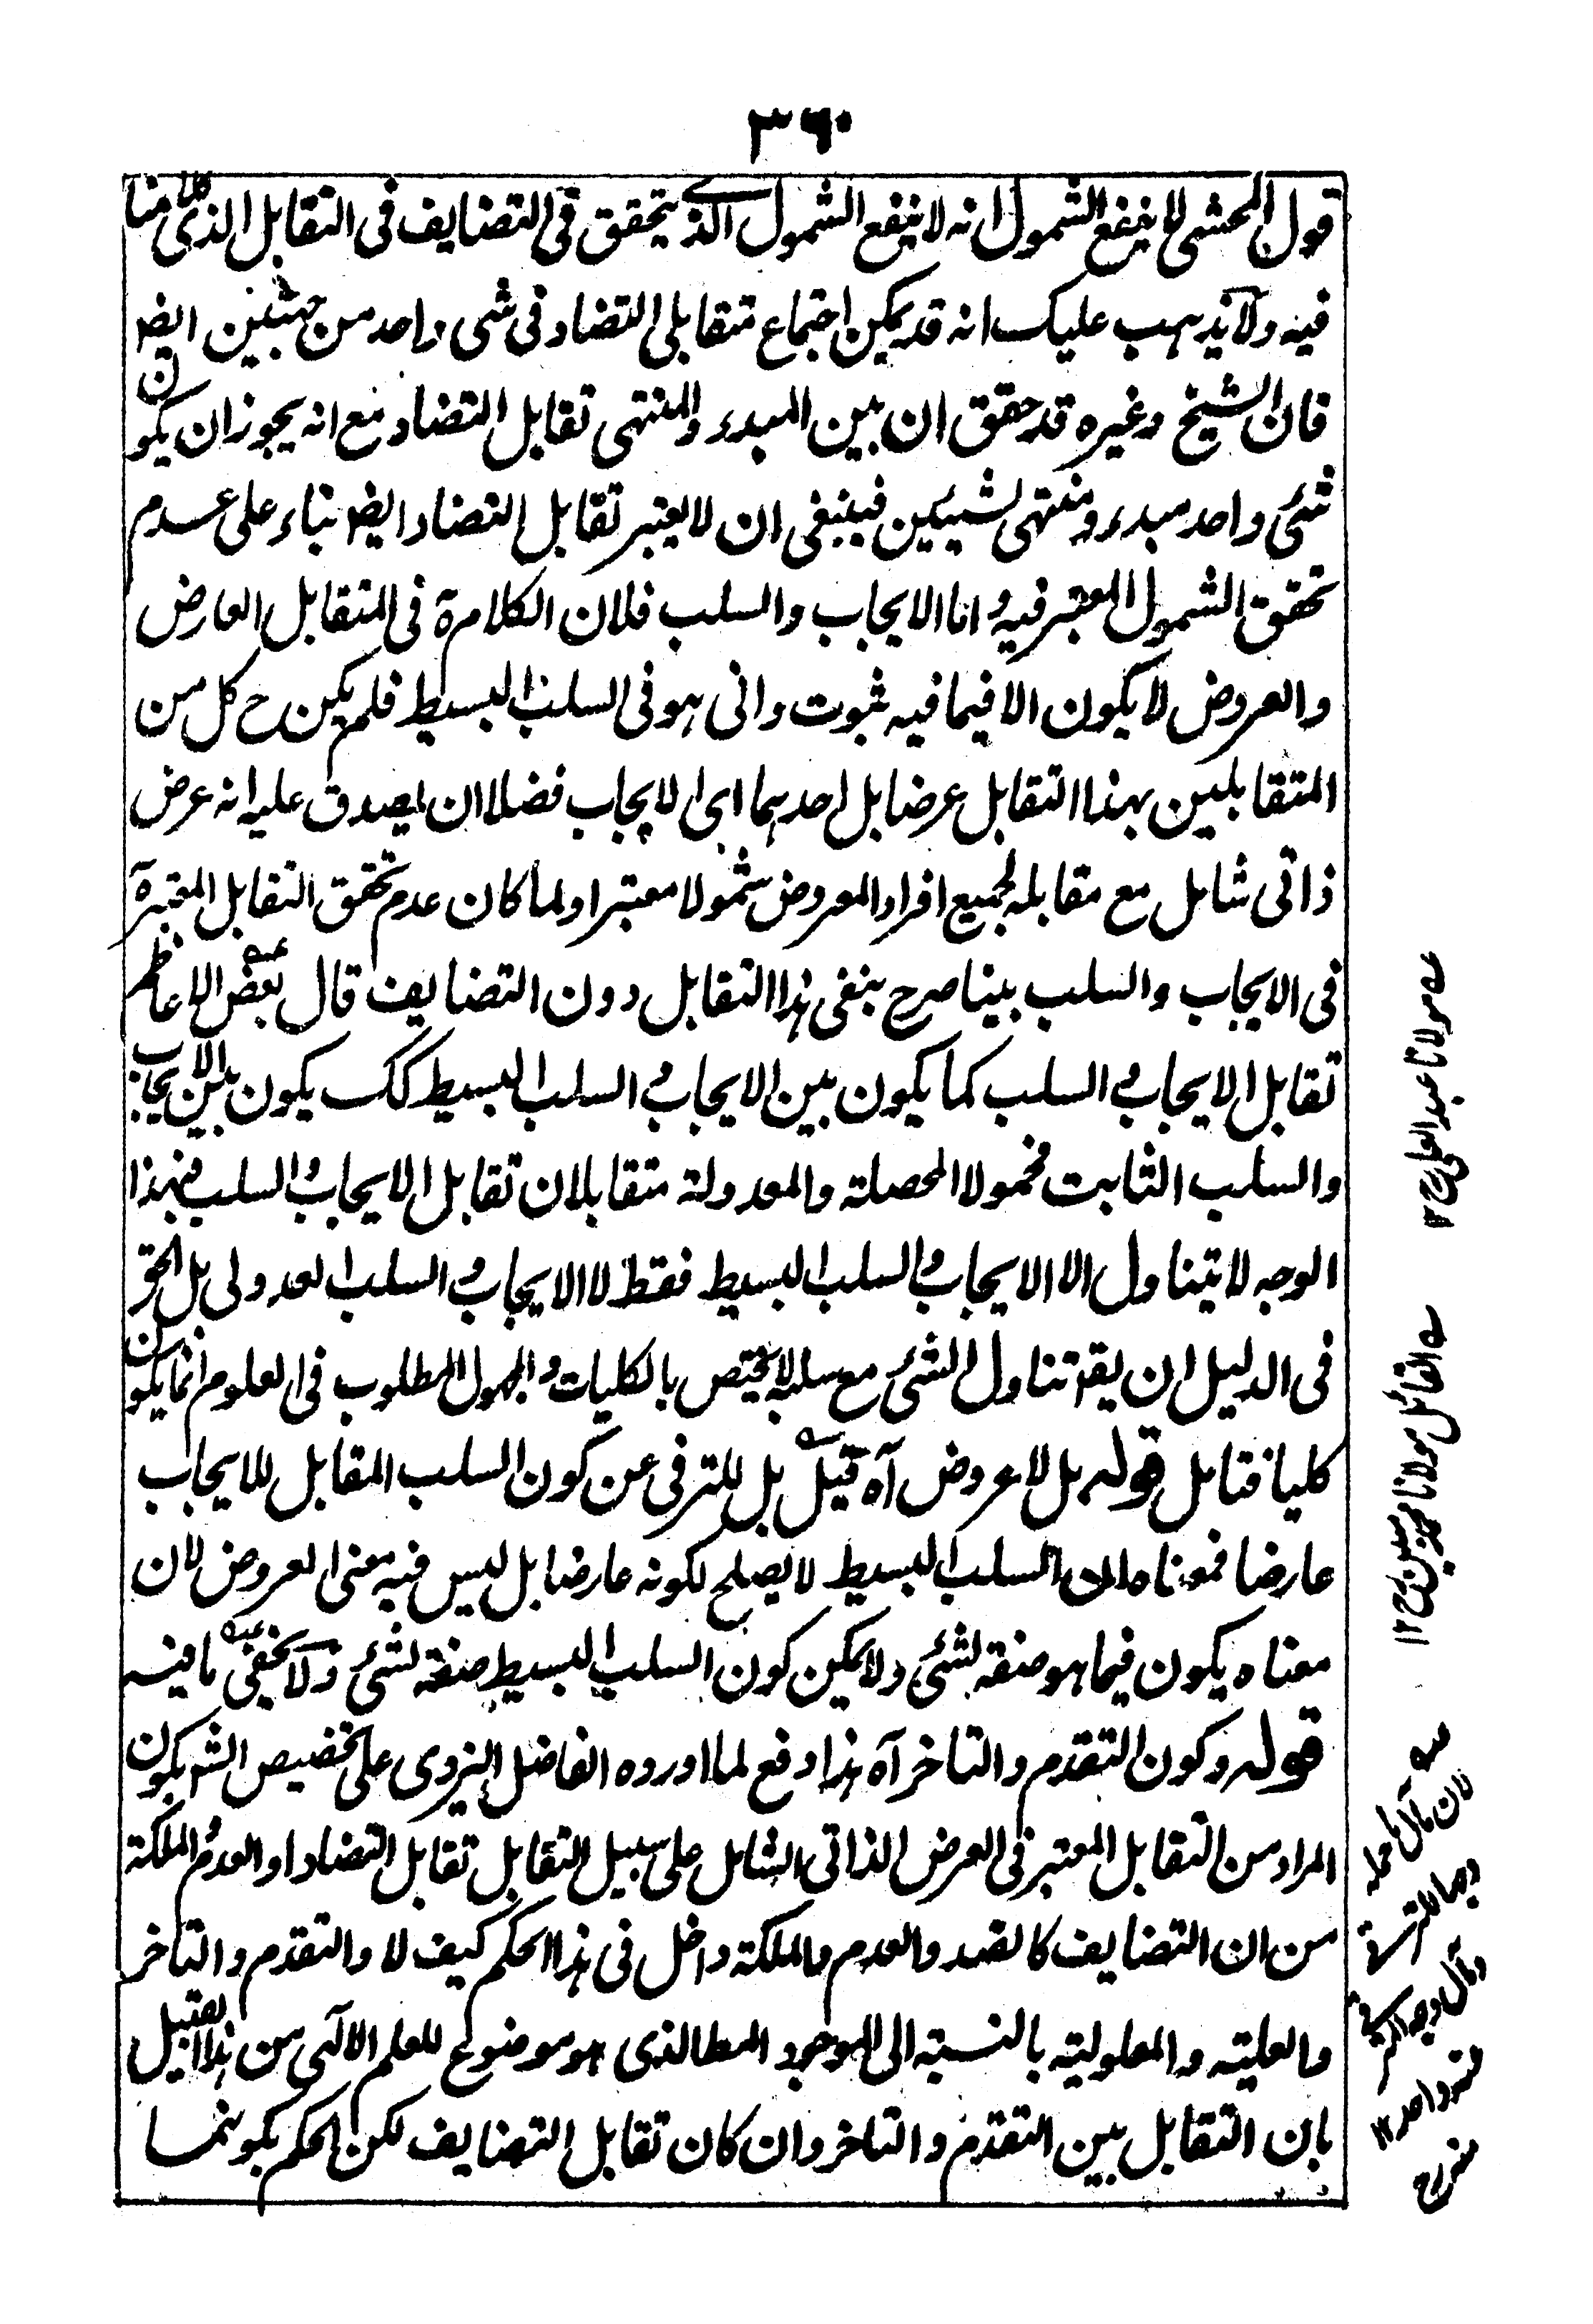 ٣٦٠
قول المحشي لا ينفع الشمول انه لا ينفع الشمول الذي يتحقق في التضايف في التقابل الذي كلامنا
فيه ولا يذهب عليك انه قد يمكن اجتماع متقابلي التضاد في شي واحد من جهتين ايضا
فان الشيخ وغيره قد حقق ان بين المبدء والمنتهى تقابل التضاد مع انه يجوز ان يكون
شئ واحد مبدء ومنتهى لشيئين فينبغي ان لا يعتبر تقابل التضاد ايضا بناء على عدم
تحقق الشمول المعتبر فيه واما الايجاب والسلب فلان الكلام في المتقابل العارض
والعروض لا يكون الا فيما فيه ثبوت وانى هو في السلب البسيط فلم يكن ح كل من
المتقابلين بهذا التقابل عرضا بل احدهما اى الايجاب فضلا ان يصدق عليه انه عرض
ذاتي شامل مع مقابله لجميع افراد المعروض شمولا معتبرا ولما كان عدم تحقق التقابل المعتبرة
في الايجاب والسلب بينا صرح بنفي هذا التقابل دون التضايف قال بعض الاعاظم
تقابل الايجاب و السلب كما يكون بين الايجاب و السلب البسيط كك يكون بين الايجاب
والسلب الثابت فمحمولا المحصلة والمعدولة متقابلان تقابل الايجاب و السلب فبهذا
الوجه لا يتناول الا الايجاب و السلب البسيط فقط لا الايجاب و السلب العدولي بل الحق
في الدليل ان يقه تناول الشئ مع سلبه لا يختص بالكليات و المجهول المطلوب في العلوم انما يكون
كليا فتامل قوله بل لا عروض آه قيل بل للترقي عن كون السلب المقابل للايجاب
عارضا فمعناه ان السلب البسيط لا يصلح لكونه عارضا بل ليس فيه معنى العروض لان
معناه يكون فيما هو صفة لشئ ولا يمكن كون السلب البسيط صفة لشئ ولا يخفى ما فيه
قوله وكون التقدم والتاخر آه هذا دفع لما اورده الفاضل اليزدي على تخصيص الشر بكون
المراد من التقابل المعتبر في العرض الذاتي الشامل على سبيل التقابل تقابل التضاد او العدم و الملكة
من ان التضايف كالضد والعدم والملكة داخل في هذا الحكم كيف لا والتقدم والتاخر
والعلية والمعلولية بالنسبة الى الموجود المطا الذي هو موضوع للعلم الالهي من هذا القبيل
بان التقابل بين التقدم والتاخر وان كان تقابل التضايف لكن الحكم بكونهما
مولانا عبد العلى رح ١٢
القائل مولانا محمد مبين رح ١٢
لان مآل ما
فرد واحد ١٢
منه رح